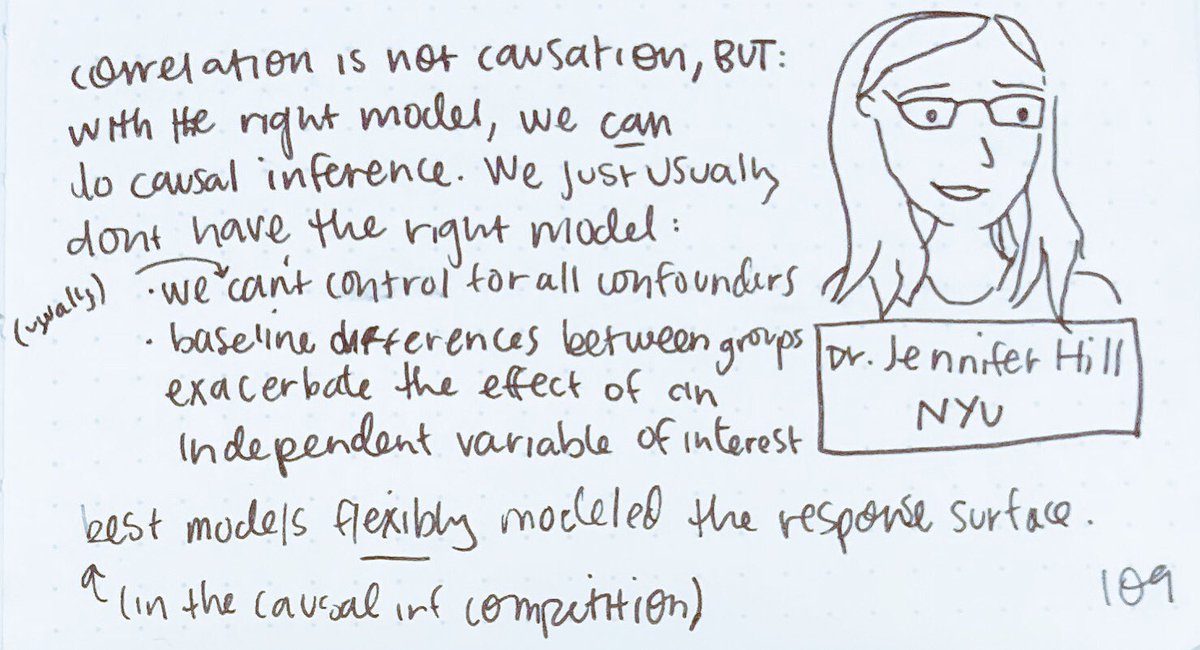 correlation is not causation, BUT:
with the right model, we can
do causal inference. We just usually
dont have the right model:
(usually)
· we can't control for all confounders
· baseline differences between groups
exacerbate the effect of an
independent variable of interest
Dr. Jennifer Hill
NYU
best models flexibly modeled the response surface.
(in the causal inf competition)
109